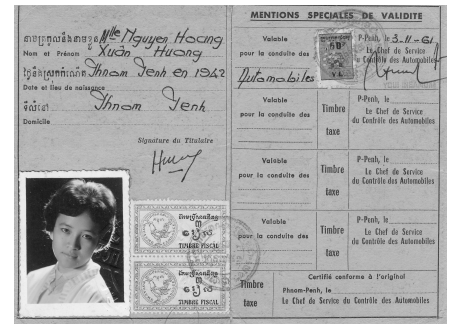 Mlle Nguyen Hoang
Nom et Prénom Xuân Huong
Thnom Penh en 1942
Date et lieu de naissance
Thnom Penh
Domicile
Signature du Titulaire
TIMBRE FISCAL
TIMBRE FISCAL
MENTIONS SPECIALES DE VALIDITE
Valable
pour la conduite des
Automobiles
P-Penh, le 3-11-61
Le Chef de Service
du Contrôle des Automobiles
Valable
pour la conduite des
Timbre
taxe
P-Penh, le
Le Chef de Service
du Contrôle des Automobiles
Valable
pour la conduite des
Timbre
taxe
P-Penh, le
Le Chef de Service
du Contrôle des Automobiles
Valable
pour la conduite des
Timbre
taxe
P-Penh, le
Le Chef de Service
du Contrôle des Automobiles
Timbre
taxe
Certifié conforme à l'original
Phnom-Penh, le
Le Chef de Service du Contrôle des Automobiles